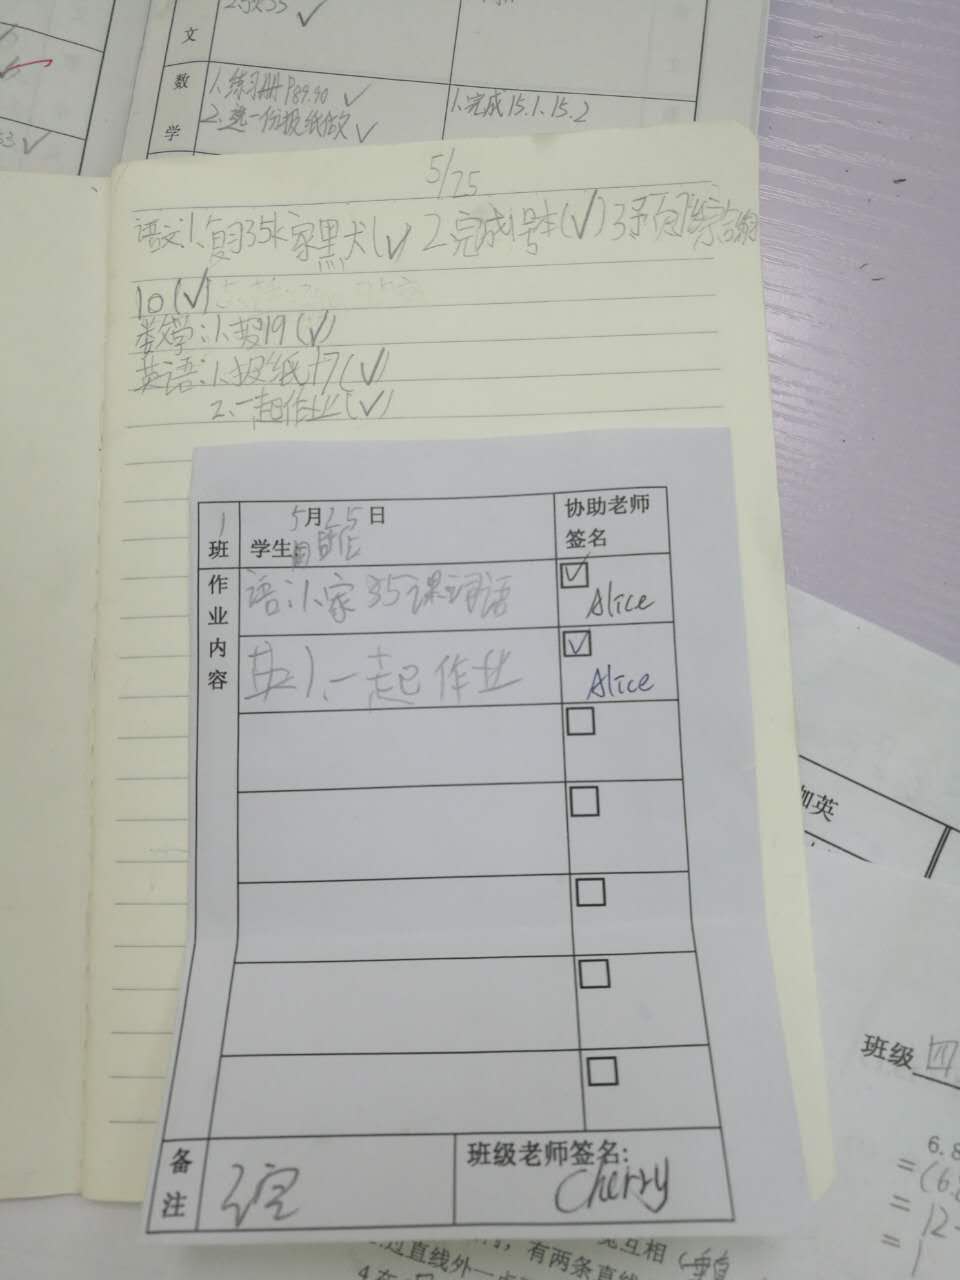 文
数
学
1.练习册P89.90 ✓
2.选一份报纸做 ✓
1.完成15.1、15.2
53 ✓
5/25
语文:1.复习35 家 黑犬(✓) 2.完成1号本(✓) 3.
10(✓)
数学:1.报19(✓)
英语:1.报纸17(✓)
2.一起作业(✓)
1班
5月25日
学生
协助老师
签名
作业内容
语:1.家35课词语
☑ Alice
英1.一起作业
☑ Alice
备注
班级老师签名:
Cherry
加英
班级 四
6.8
=(6.8
=12-
=1
过直线外一点
,有两条直线
互相(垂直
4.在